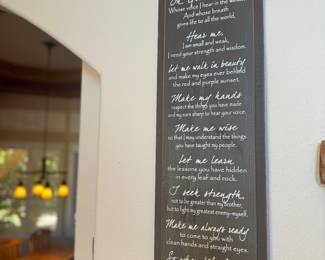 Whose voice I hear in the winds,
And whose breath
gives life to all the world,
Hear me,
I am small and weak,
I need your strength and wisdom.
Let me walk in beauty
and make my eyes ever behold
the red and purple sunset.
Make my hands
respect the things you have made
and my ears sharp to hear your voice.
Make me wise
so that I may understand the things
you have taught my people.
Let me learn
the lessons you have hidden
in every leaf and rock.
I seek strength,
not to be greater than my brother,
but to fight my greatest enemy-myself.
Make me always ready
to come to you with
clean hands and straight eyes.
So when